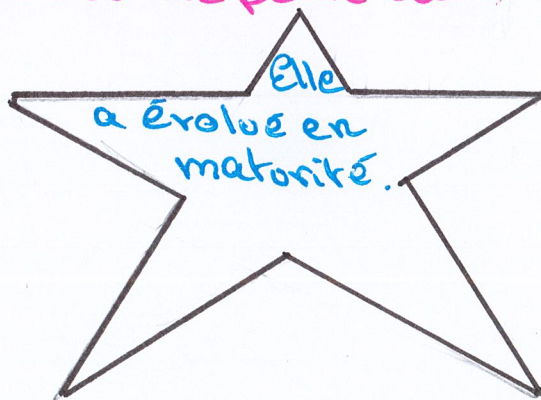 Elle
a évolué en
maturité.